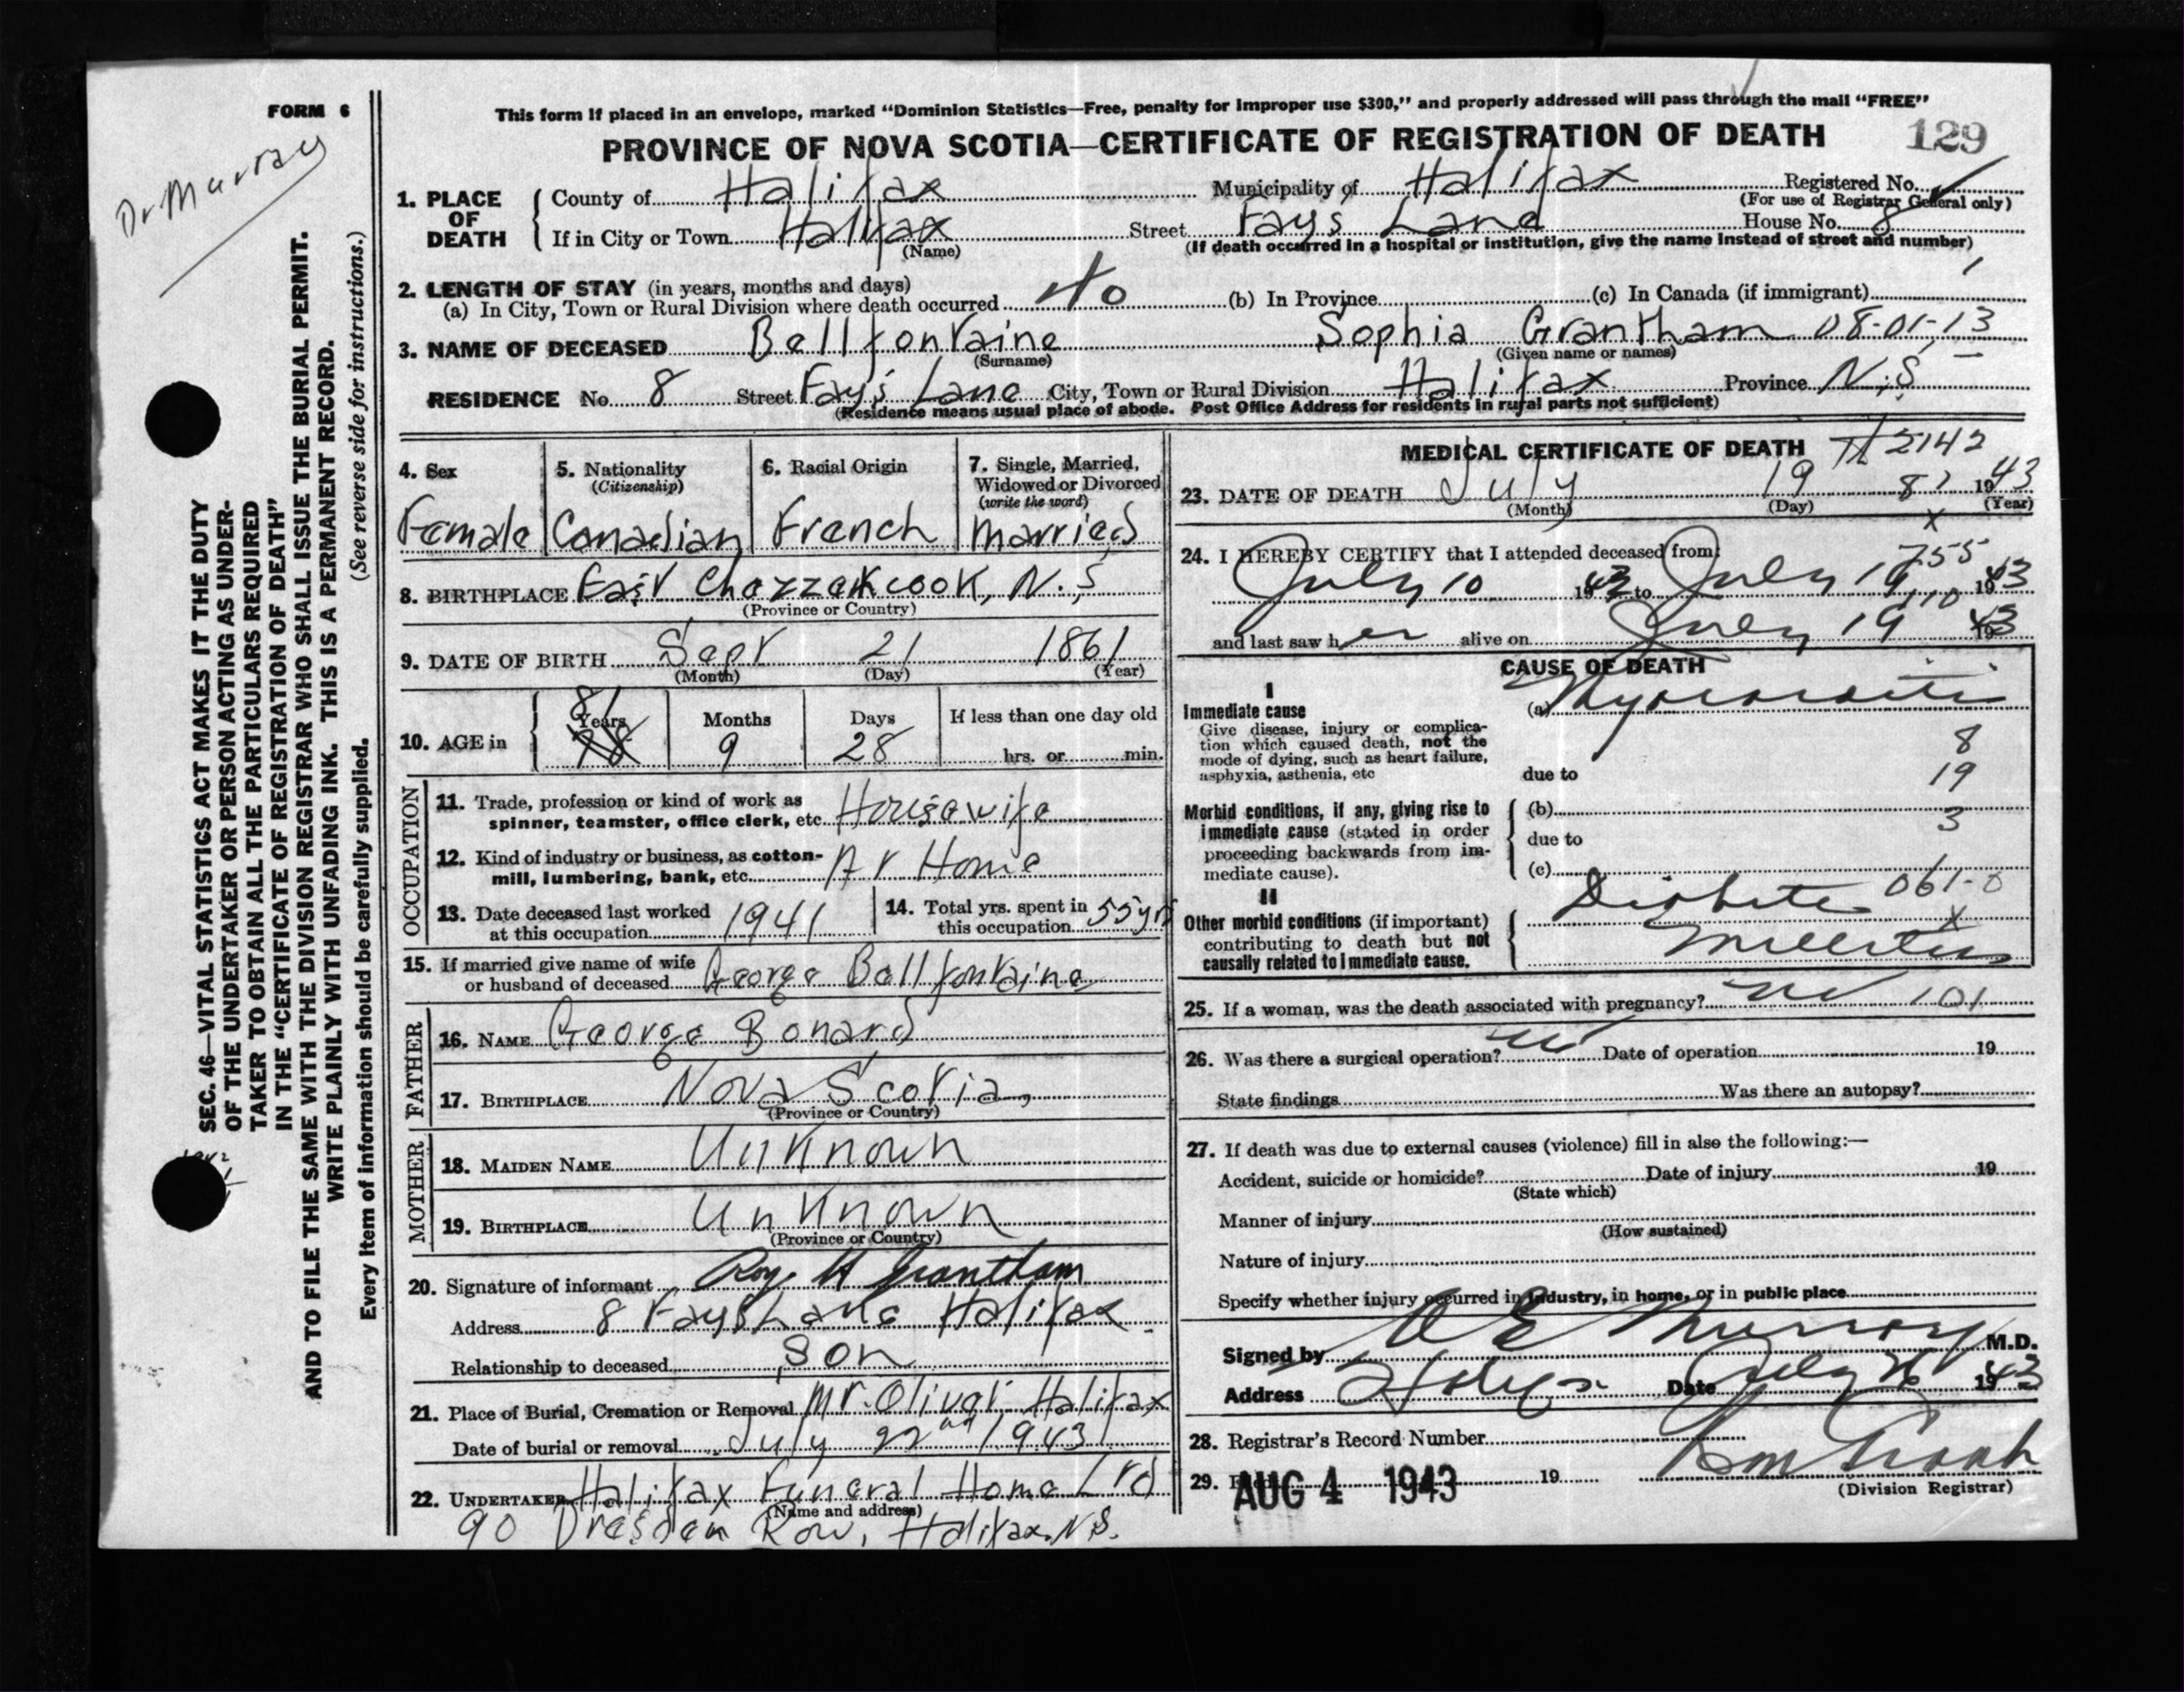 FORM 6
Dr Murray
SEC. 46—VITAL STATISTICS ACT MAKES IT THE DUTY
OF THE UNDERTAKER OR PERSON ACTING AS UNDER-
TAKER TO OBTAIN ALL THE PARTICULARS REQUIRED
IN THE "CERTIFICATE OF REGISTRATION OF DEATH"
AND TO FILE THE SAME WITH THE DIVISION REGISTRAR WHO SHALL ISSUE THE BURIAL PERMIT.
WRITE PLAINLY WITH UNFADING INK. THIS IS A PERMANENT RECORD.
Every item of information should be carefully supplied. (See reverse side for instructions.)
This form if placed in an envelope, marked "Dominion Statistics—Free, penalty for improper use $300," and properly addressed will pass through the mail "FREE"
PROVINCE OF NOVA SCOTIA—CERTIFICATE OF REGISTRATION OF DEATH 129
1. PLACE OF DEATH
County of Halifax Municipality of Halifax Registered No.
(For use of Registrar General only)
If in City or Town Halifax Street Fays Lane House No. 8
(Name) (If death occurred in a hospital or institution, give the name instead of street and number)
2. LENGTH OF STAY (in years, months and days)
(a) In City, Town or Rural Division where death occurred 40 (b) In Province (c) In Canada (if immigrant)
3. NAME OF DECEASED Bellfontaine Sophia Grantham 08-01-13
(Surname) (Given name or names)
RESIDENCE No. 8 Street Fays Lane City, Town or Rural Division Halifax Province N.S
(Residence means usual place of abode. Post Office Address for residents in rural parts not sufficient)
4. Sex 5. Nationality 6. Racial Origin 7. Single, Married,
(Citizenship) Widowed or Divorced
(write the word)
Female Canadian French Married
8. BIRTHPLACE East Chezzetcook, N.S
(Province or Country)
9. DATE OF BIRTH Sept 21 1861
(Month) (Day) (Year)
10. AGE in 81 Years 78 Months 9 Days 28 If less than one day old
hrs. or min.
OCCUPATION
11. Trade, profession or kind of work as
spinner, teamster, office clerk, etc. Housewife
12. Kind of industry or business, as cotton-
mill, lumbering, bank, etc. At Home
13. Date deceased last worked
at this occupation 1941
14. Total yrs. spent in
this occupation 55 yrs
15. If married give name of wife
or husband of deceased George Bellfontaine
FATHER
16. NAME George Bonard
17. BIRTHPLACE Nova Scotia
(Province or Country)
MOTHER
18. MAIDEN NAME Unknown
19. BIRTHPLACE Unknown
(Province or Country)
20. Signature of informant Roy H Grantham
Address 8 Fays Lane Halifax
Relationship to deceased Son
21. Place of Burial, Cremation or Removal Mt. Olivet Halifax
Date of burial or removal July 22nd 1943
22. UNDERTAKER Halifax Funeral Home Ltd
(Name and address)
90 Dresden Row, Halifax. N.S.
MEDICAL CERTIFICATE OF DEATH 2142
23. DATE OF DEATH July 19 81 1943
(Month) (Day) (Year)
24. I HEREBY CERTIFY that I attended deceased from:
755
July 10 1943 to July 19 1943
and last saw her alive on July 19 1943
CAUSE OF DEATH
I
Immediate cause (a) Myocarditis
Give disease, injury or complica-
tion which caused death, not the
mode of dying, such as heart failure,
asphyxia, asthenia, etc due to
8
19
3
Morbid conditions, if any, giving rise to
immediate cause (stated in order
proceeding backwards from im-
mediate cause).
(b)
due to
(c)
II
Other morbid conditions (if important)
contributing to death but not
causally related to immediate cause.
Diabetes 061-0
x
mellitus
25. If a woman, was the death associated with pregnancy? no 101
26. Was there a surgical operation? no Date of operation 19
State findings Was there an autopsy?
27. If death was due to external causes (violence) fill in also the following:—
Accident, suicide or homicide? Date of injury 19
(State which)
Manner of injury
(How sustained)
Nature of injury
Specify whether injury occurred in industry, in home, or in public place
Signed by Murray M.D.
Address Halifax Date July 26 1943
28. Registrar's Record Number
29. AUG 4 1943 19
(Division Registrar)